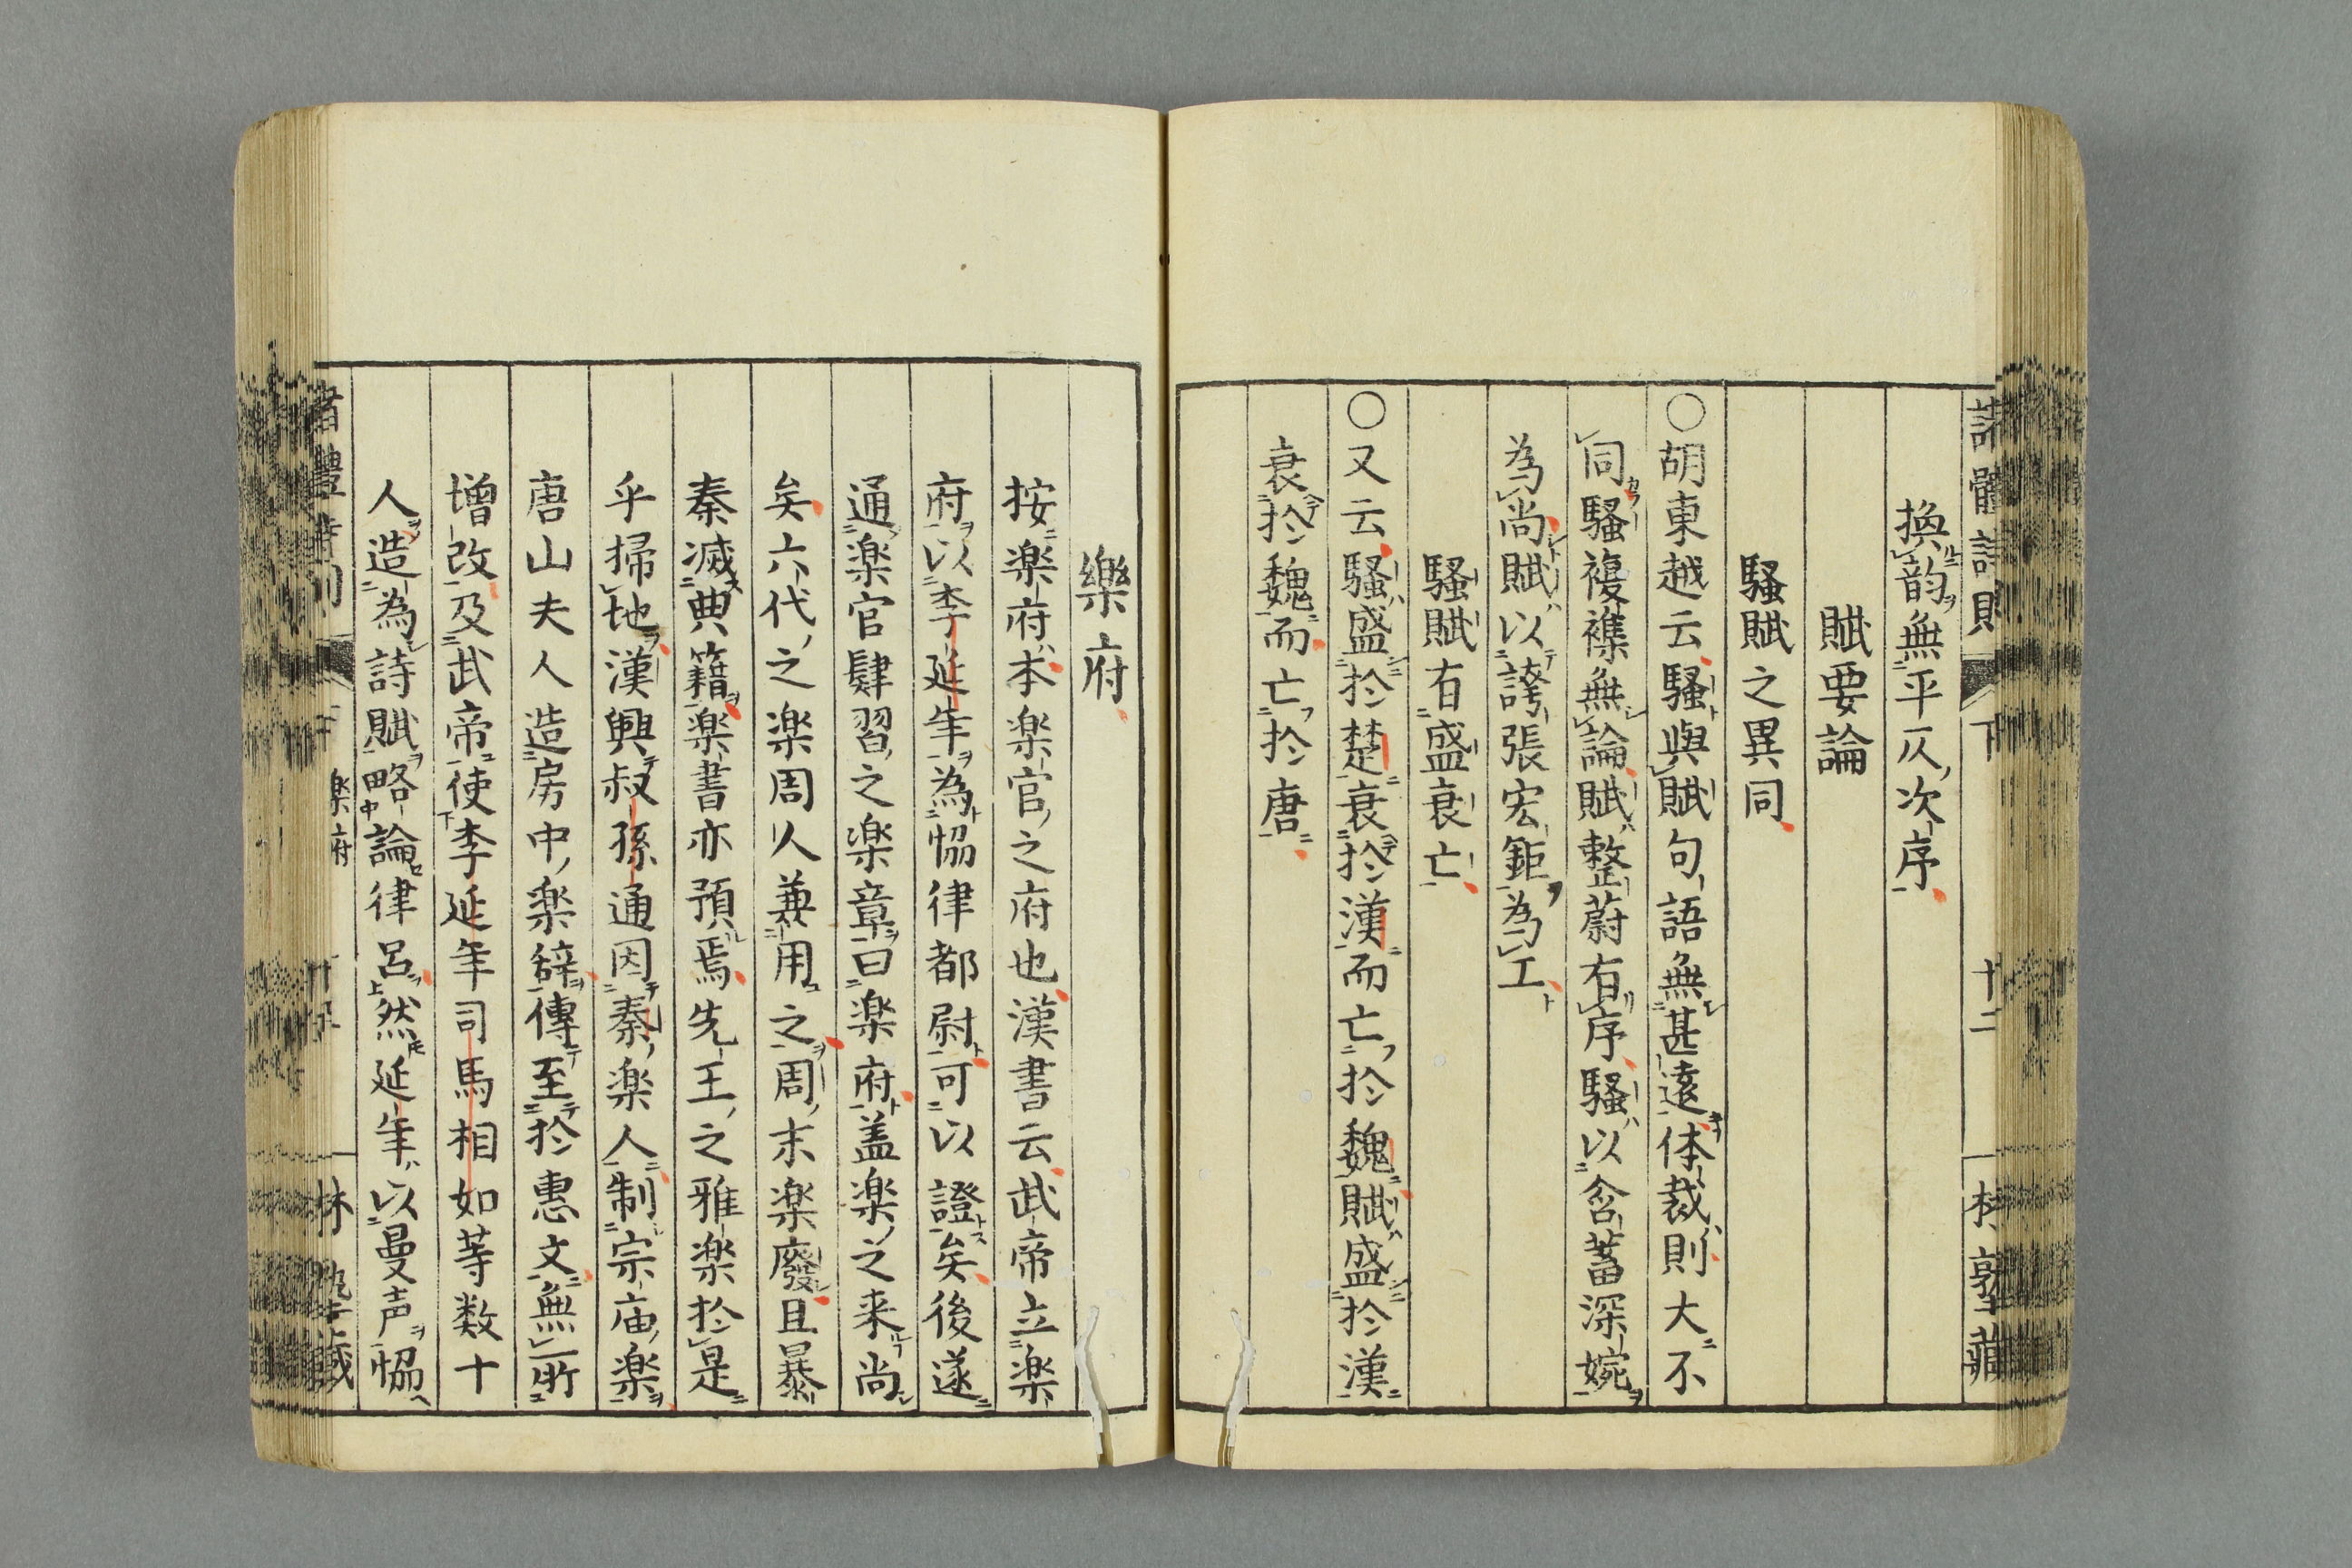 諸體詩則 下 十二 林塾藏
換韵無平仄次序
賦要論
騷賦之異同
○胡東越云騷與賦句語無甚遠体裁則大不
同騷複襍無論賦整蔚有序騷以含蓄深婉
為尚賦以誇張宏鉅為工
騷賦有盛衰亡
○又云騷盛於楚衰於漢而亡於魏賦盛於漢
衰於魏而亡於唐
樂府
按楽府本楽官之府也漢書云武帝立楽
府以李延年為恊律都尉可以證矣後遂
通楽官肄習之楽章曰楽府盖楽之来尚
矣六代之楽周人兼用之周末楽廢且暴
秦滅典籍楽書亦預焉先王之雅楽於是
乎掃地漢興叔孫通因秦楽人制宗庙楽
唐山夫人造房中楽辞傳至於惠文無所
増改及武帝使李延年司馬相如等数十
人造為詩賦略論律呂然延年以曼声恊
楽府